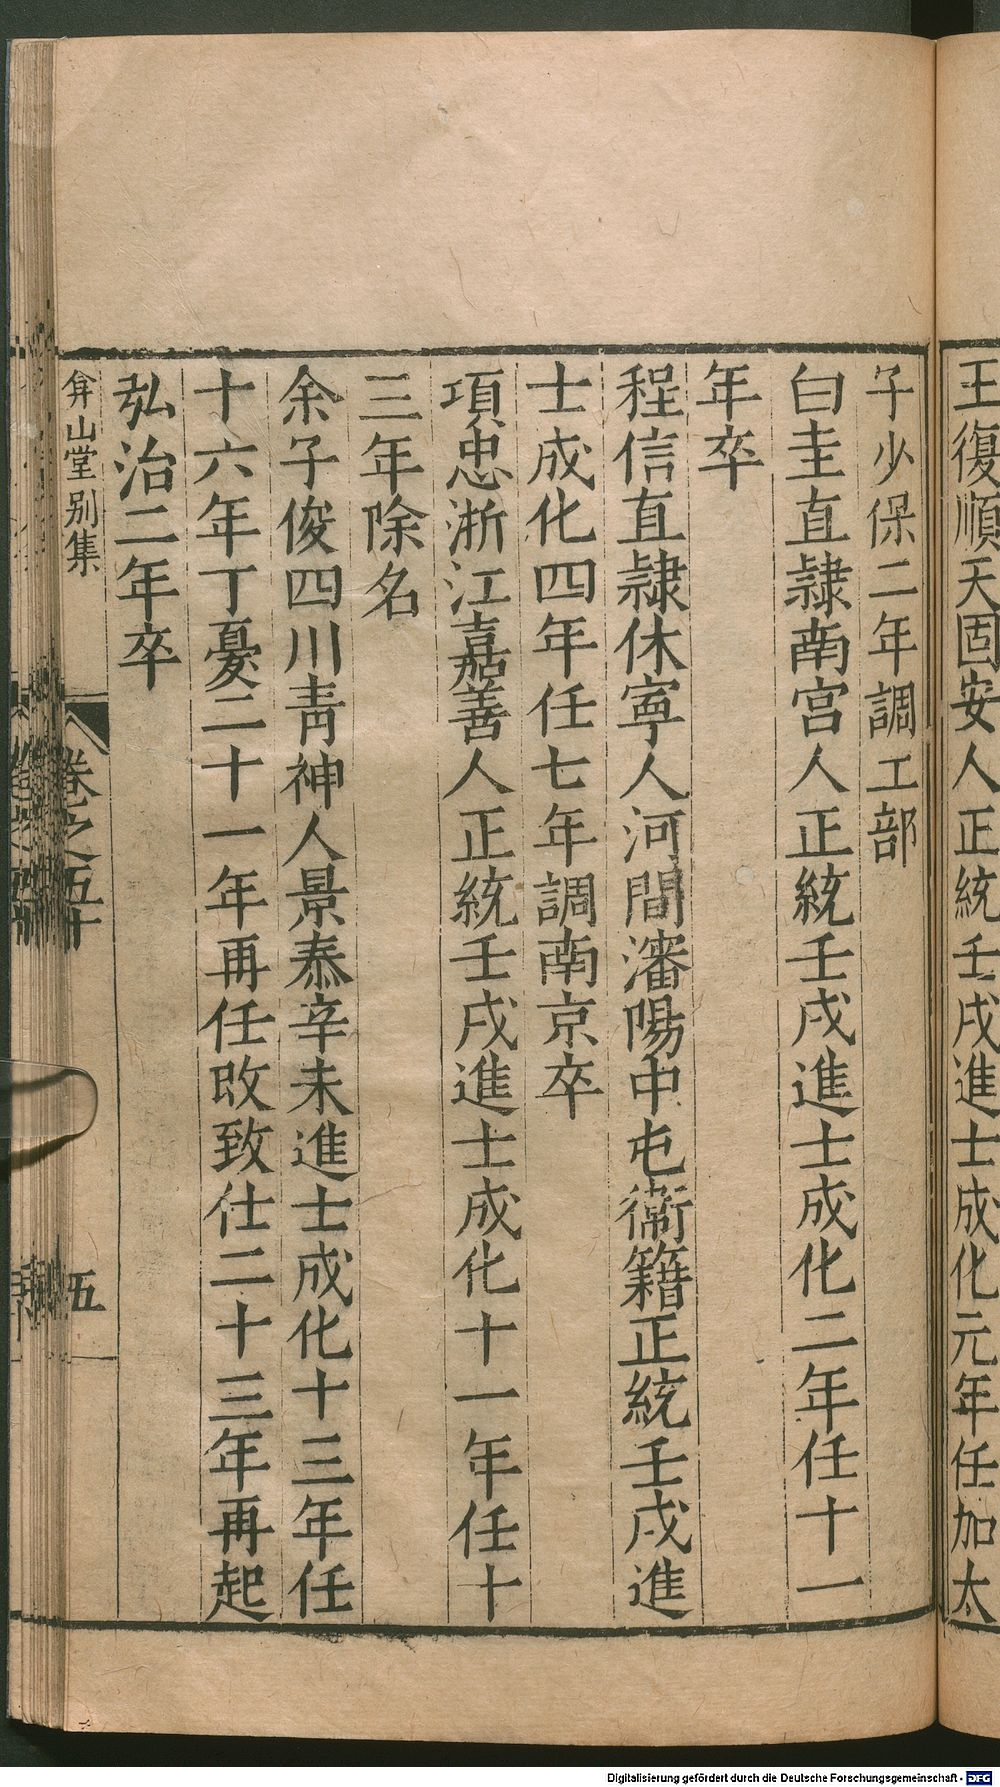 王復順天固安人正統壬戌進士成化元年任加太
子少保二年調工部
白圭直隸南宮人正統壬戌進士成化二年任十一
年卒
程信直隸休寧人河間瀋陽中屯衞籍正統壬戌進
士成化四年任七年調南京卒
項忠浙江嘉善人正統壬戌進士成化十一年任十
三年除名
余子俊四川靑神人景泰辛未進士成化十三年任
十六年丁憂二十一年再任改致仕二十三年再起
弘治二年卒
弇山堂别集
卷之五十
五
Digitalisierung gefördert durch die Deutsche Forschungsgemeinschaft - DFG